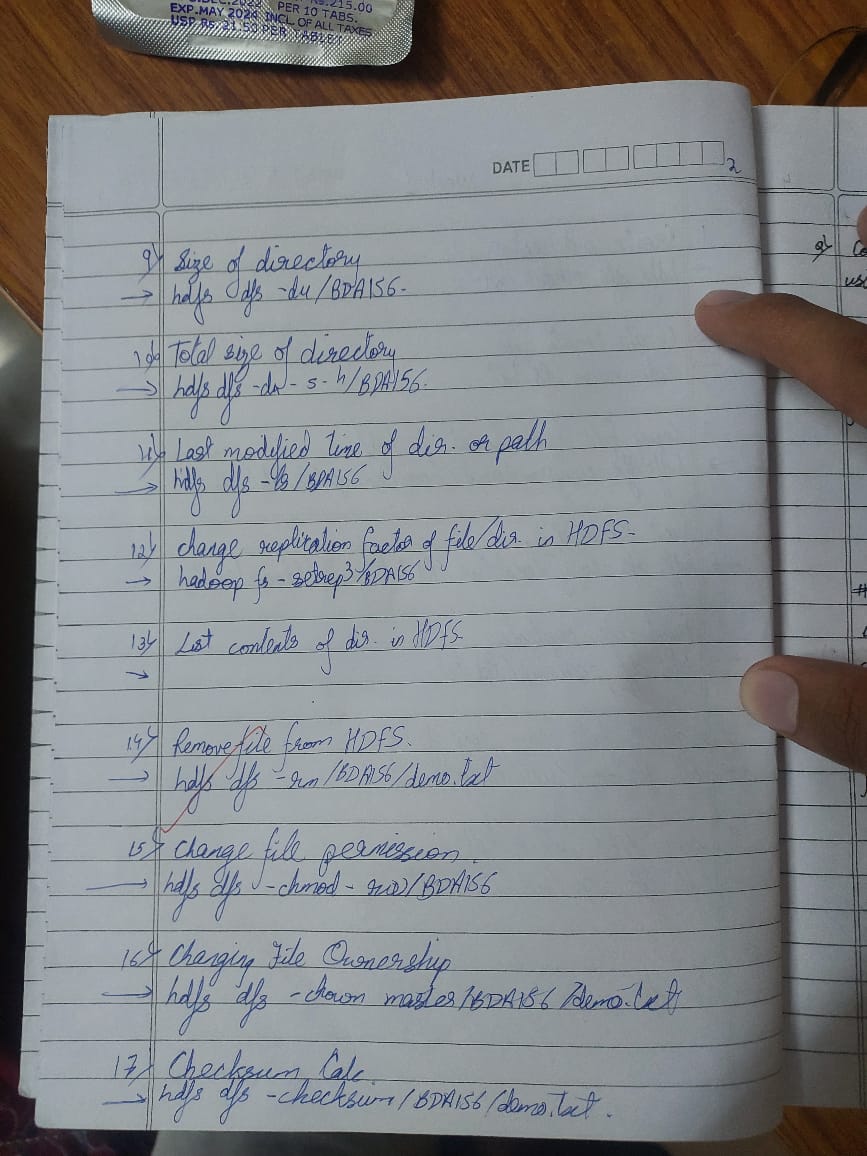 DEC.2023 Rs.215.00
EXP.MAY 2024 PER 10 TABS.
INCL.OF ALL TAXES
USP RS. 21.50 PER TABLET
DATE
2
9) Size of directory
→ hdfs dfs -du /BDA156.
10) Total size of directory
→ hdfs dfs -du - s - h/BDA156.
11) Last modified time of dir. or path
→ hdfs dfs - ls /BDA156
12) change replication factor of file/dir. in HDFS-
→ hadoop fs - setrep 3 /BDA156
13) List contents of dir. in HDFS
→
14) Remove file from HDFS.
→ hdfs dfs -rm /BDA156/demo.txt
15) change file permission.
→ hdfs dfs -chmod - /BDA156
16) Changing File Ownership
→ hdfs dfs -chown master /BDA156 /demo.txt
17) Checksum Calc
→ hdfs dfs -checksum / BDA156 /demo.txt.
9) Co
use
#